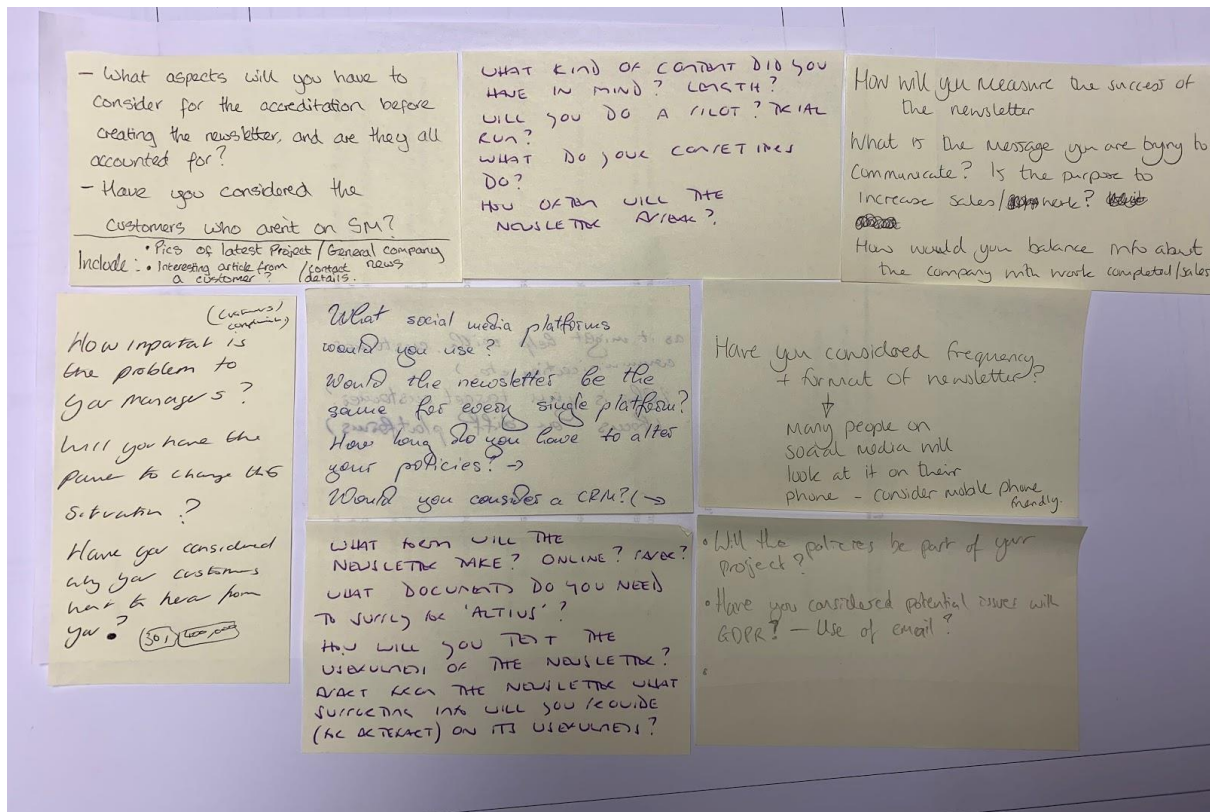 - What aspects will you have to
consider for the accreditation before
creating the newsletter, and are they all
accounted for?
- Have you considered the
customers who arent on SM?
Include: • Pics of latest Project / General company news
• Interesting article from a customer? / contact details.
WHAT KIND OF CONTENT DID YOU
HAVE IN MIND? LENGTH?
WILL YOU DO A PILOT? TRIAL
RUN?
WHAT DO YOUR COMPETITORS
DO?
HOW OFTEN WILL THE
NEWSLETTER APPEAR?
How will you measure the success of
the newsletter
What is the message you are trying to
communicate? Is the purpose to
increase sales/ work?
How would you balance info about
the company with work completed/sales
(customers)
How important is
the problem to
your managers?
Will you have the
power to change the
situation?
Have you considered
why your customers
want to hear from
you?
What social media platforms
would you use?
Would the newsletter be the
same for every single platform?
How long do you have to alter
your policies? →
Would you consider a CRM? (→
Have you considered frequency
+ format of newsletter?
↓
Many people on
social media will
look at it on their
phone - consider mobile phone
friendly.
WHAT FORM WILL THE
NEWSLETTER TAKE? ONLINE? PAPER?
WHAT DOCUMENTS DO YOU NEED
TO SUPPLY FOR 'ALTIUS'?
HOW WILL YOU TEST THE
USEFULNESS OF THE NEWSLETTER?
APART FROM THE NEWSLETTER WHAT
SUPPORTING INFO WILL YOU PROVIDE
(AC ARTEFACT) ON ITS USEFULNESS?
• Will the policies be part of your
project?
• Have you considered potential issues with
GDPR? - Use of email?